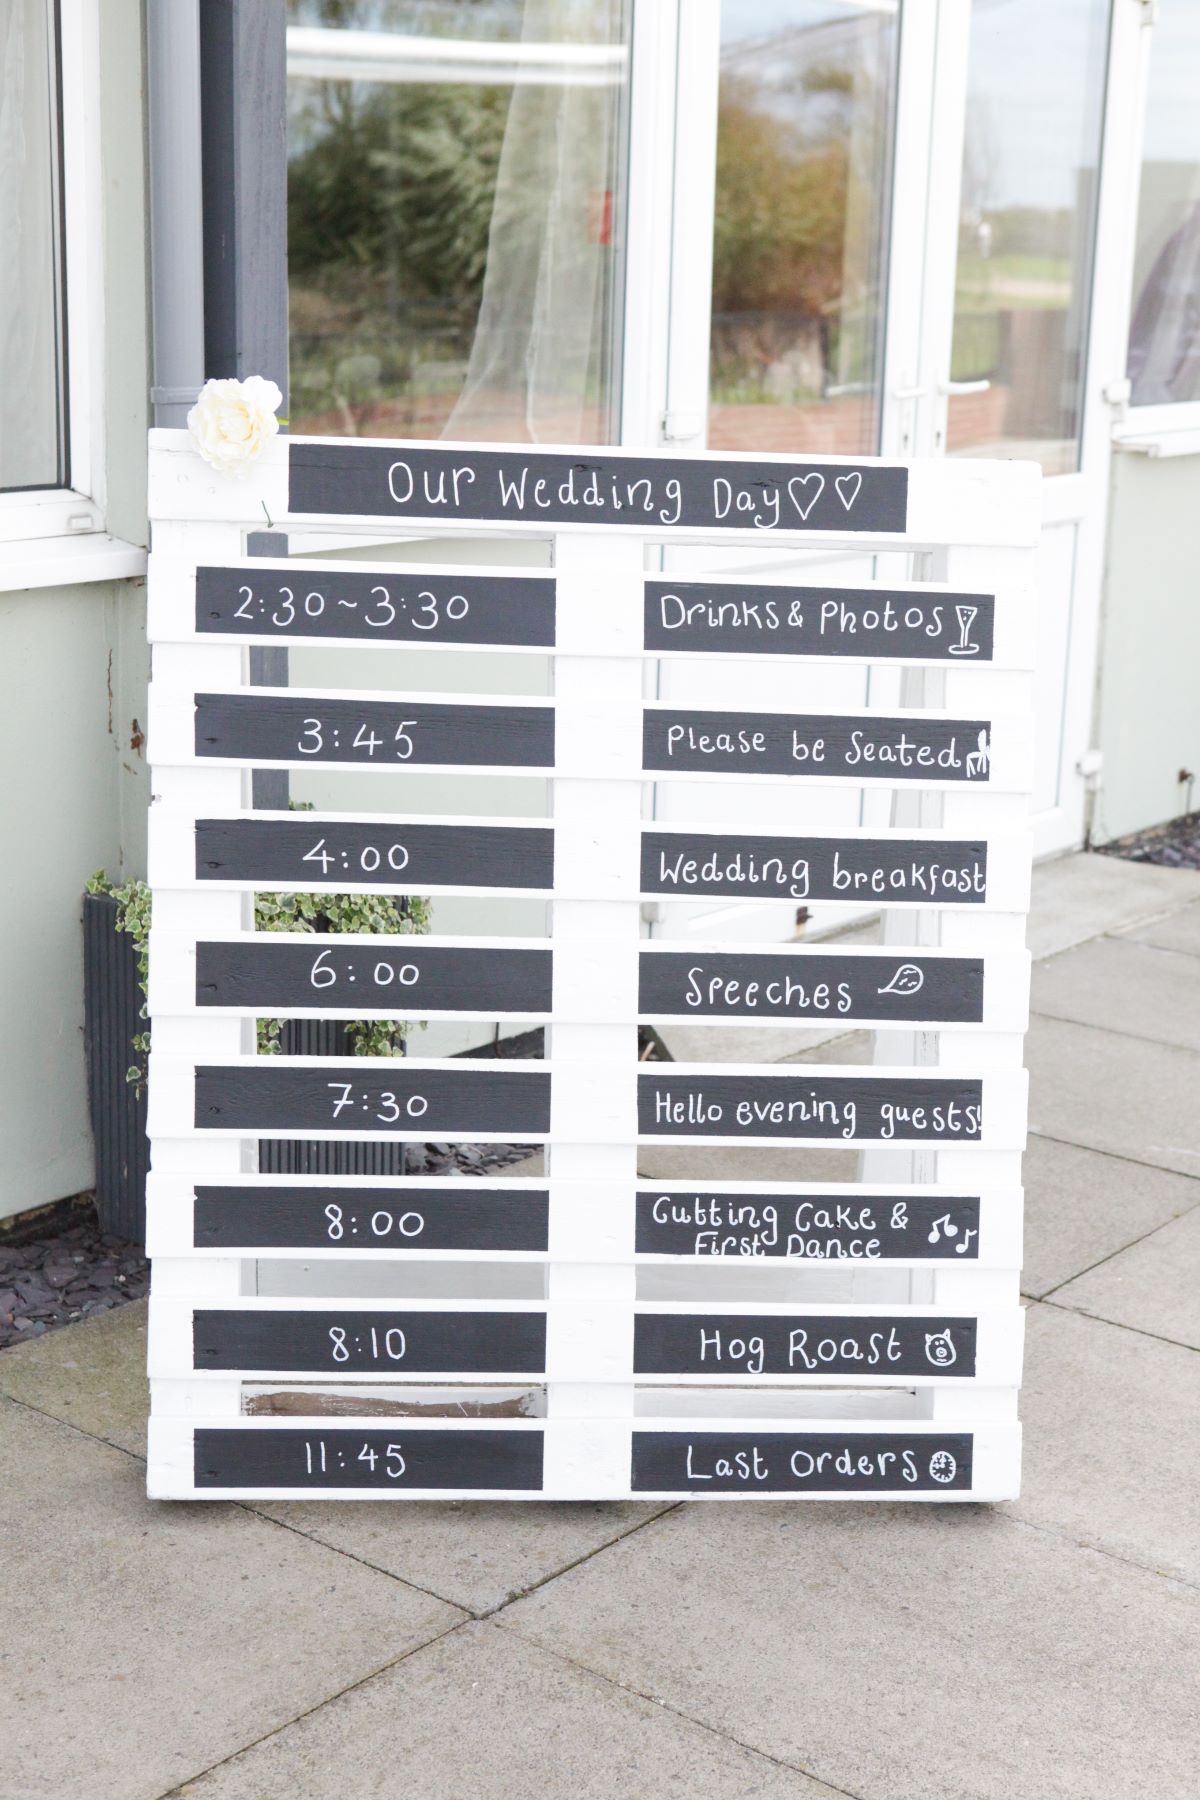 Our Wedding Day
2:30~3:30
Drinks & Photos
3:45
Please be Seated
4:00
Wedding breakfast
6:00
Speeches
7:30
Hello evening guests!
8:00
Cutting Cake &
First Dance
8:10
Hog Roast
11:45
Last Orders